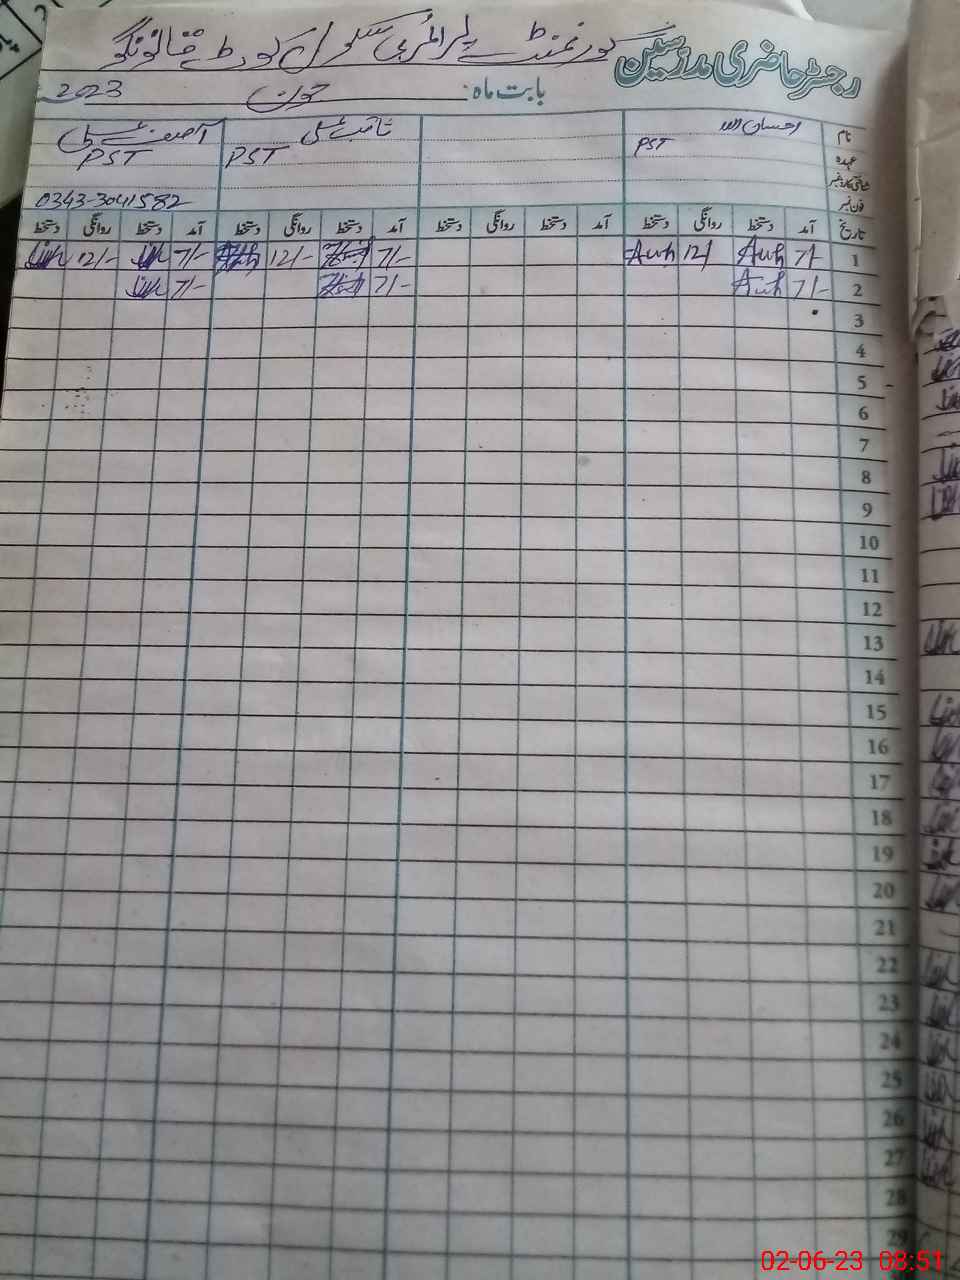 رجسٹر حاضری مدرسین گورنمنٹ پرائمری سکول کوٹ قانونگو
بابت ماہ: جون 2023
نام احسان اللہ ثاقب علی آصف علی
عہدہ PST PST PST
شناختی کارڈ نمبر
فون نمبر 0343-3041582
تاریخ آمد دستخط روانگی دستخط آمد دستخط روانگی دستخط آمد دستخط روانگی دستخط آمد دستخط روانگی دستخط
1 7/- 12/ 7/- 12/- 7/- 12/-
2 7/- 7/- 7/-
3
4
5
6
7
8
9
10
11
12
13
14
15
16
17
18
19
20
21
22
23
24
25
26
27
28
29
02-06-23 08:51